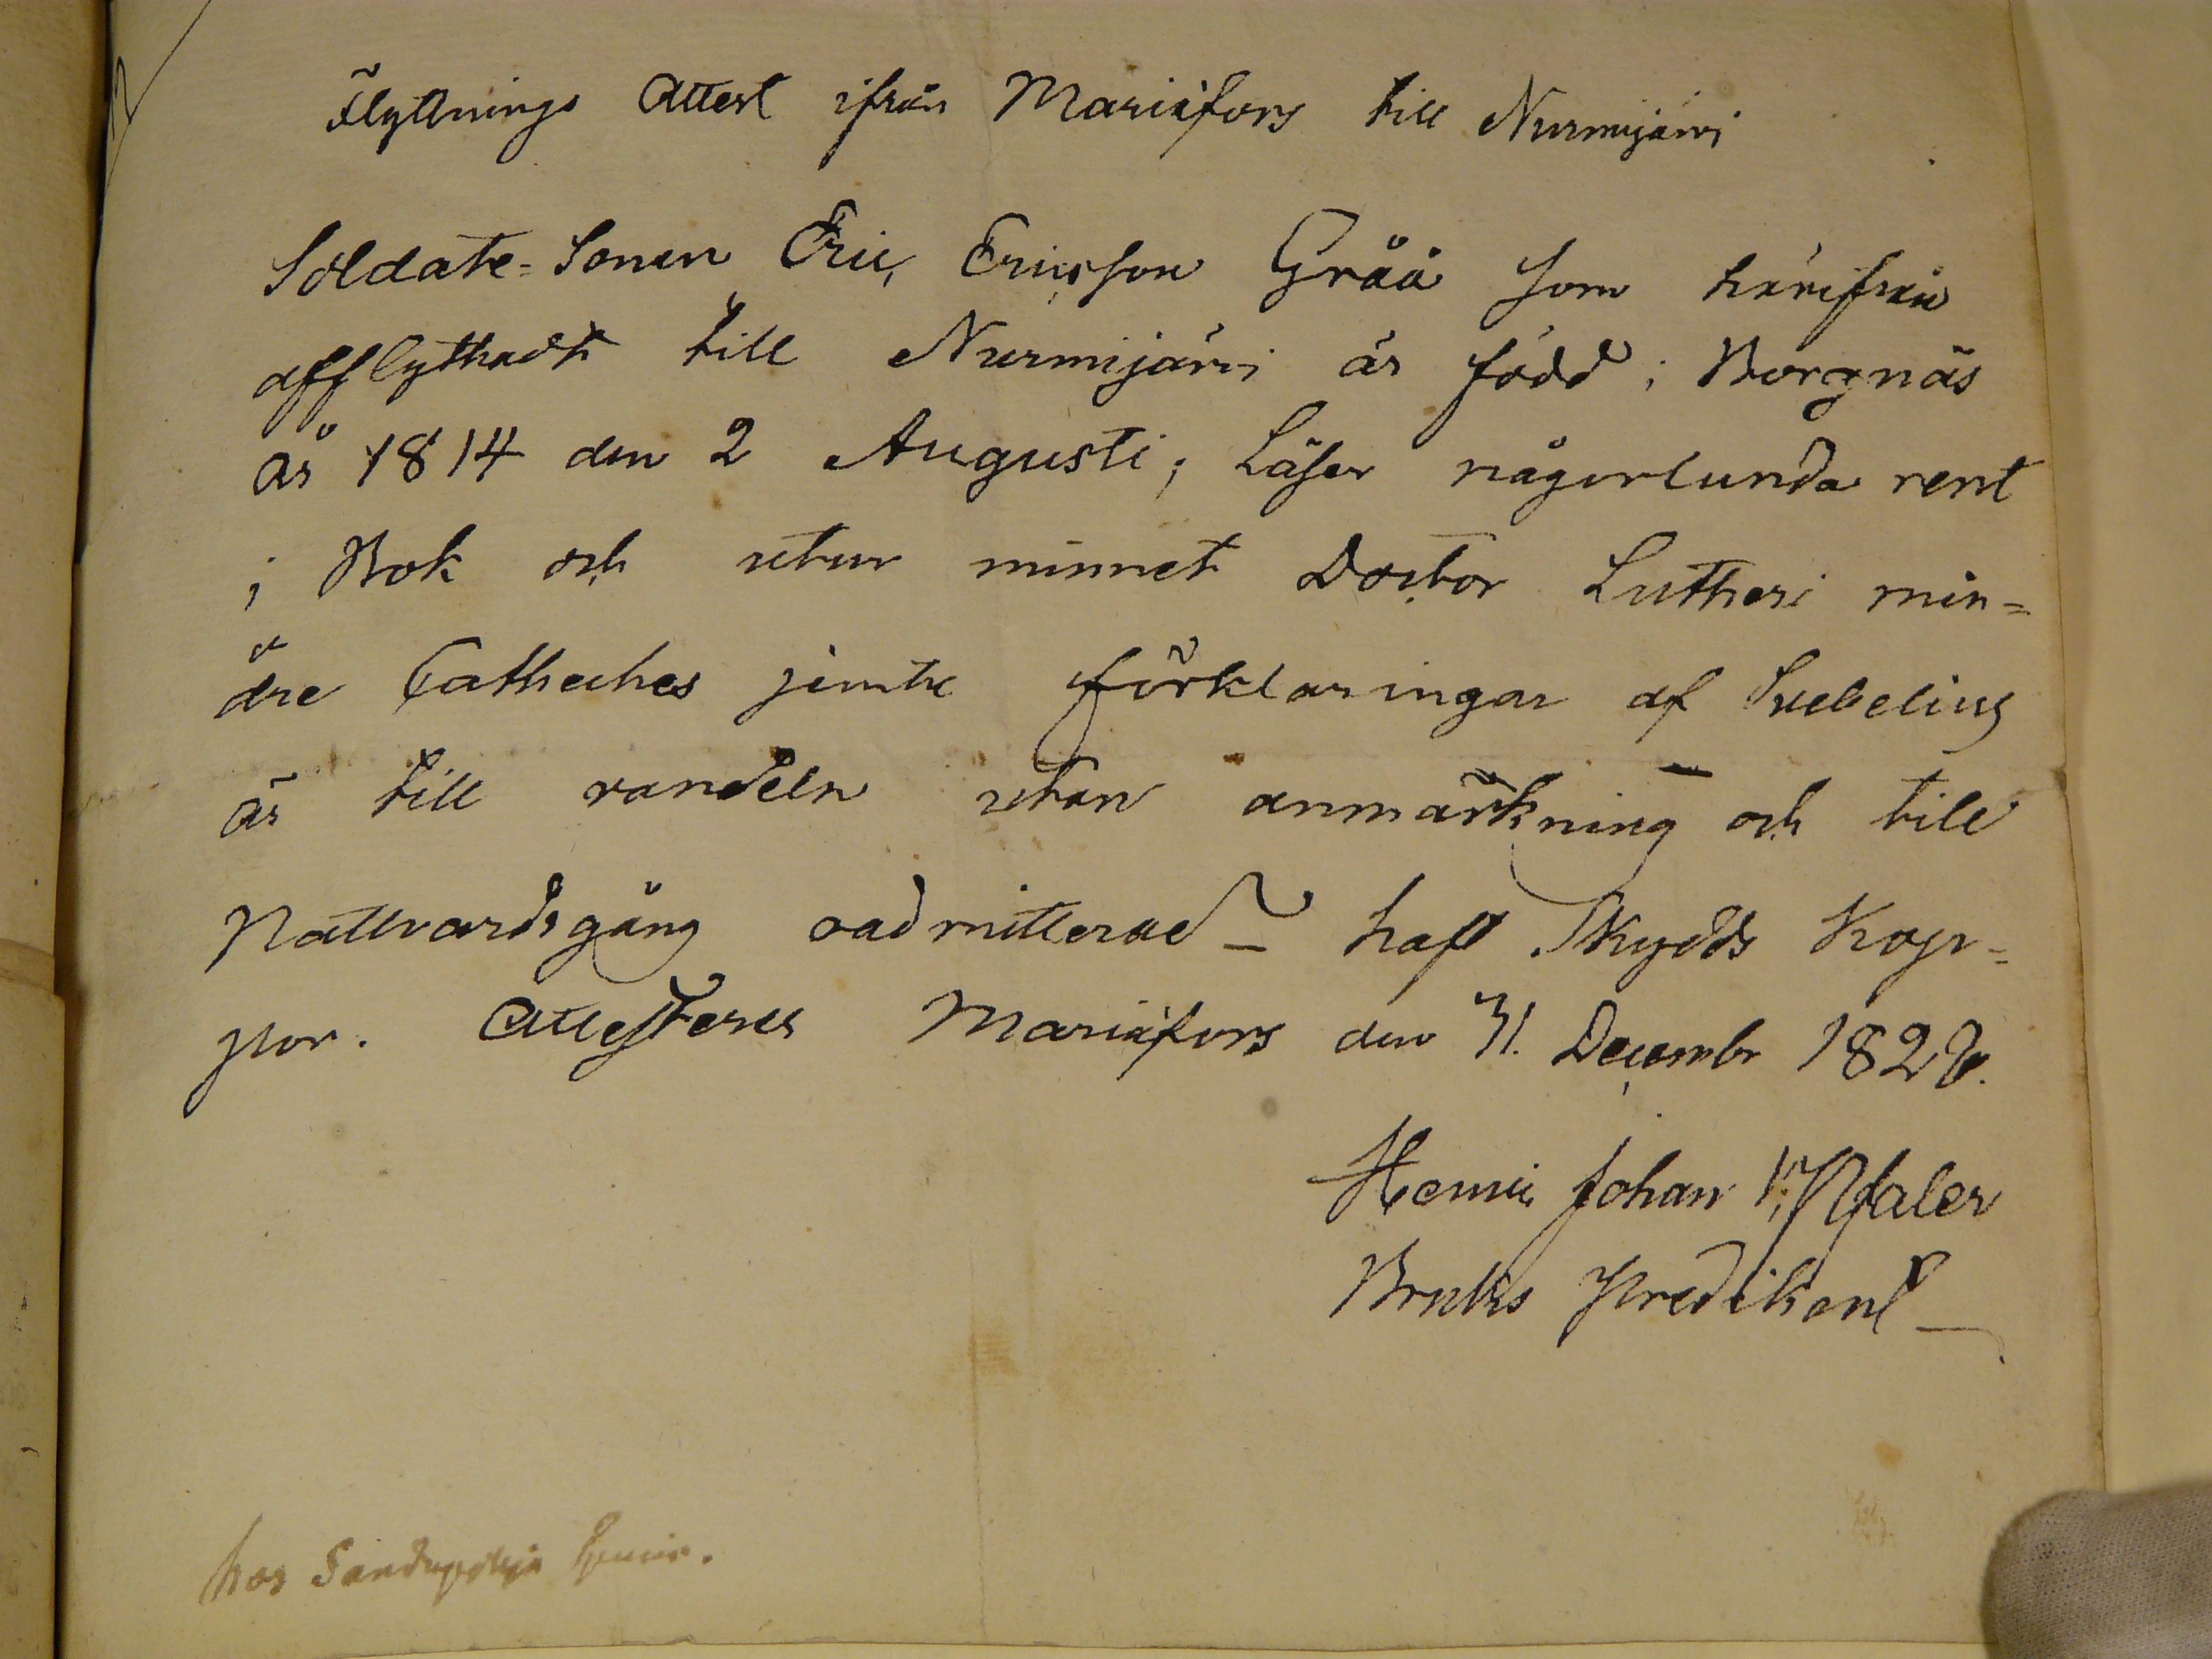 Flyttnings Attest ifrån Mariæfors till Nurmijärvi
Soldate=Sonen Eric Ericsson Gråå som härifrån
afflyttadt till Nurmijärvi är född i Borgnäs
år 1814 den 2 Augusti; Läser någorlunda rent
i Bok och utur minnet Doctor Lutheri min=
dre Catheches jemte förklaringar af Svebelius
är till vandeln utan anmärkning och till
Nattvardsgång oadmitterad – haft Skydds Kop=
por. Attesteres Mariæfors den 31. Decembr 182
Henric Johan Pfaler
Bruks Predikant
hos